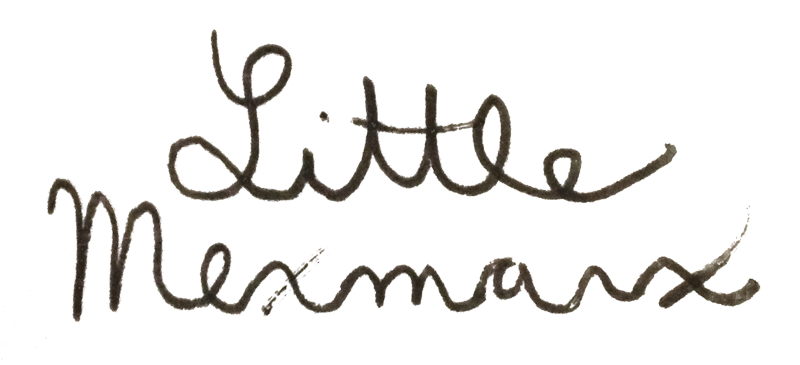 Little
Mexmarx